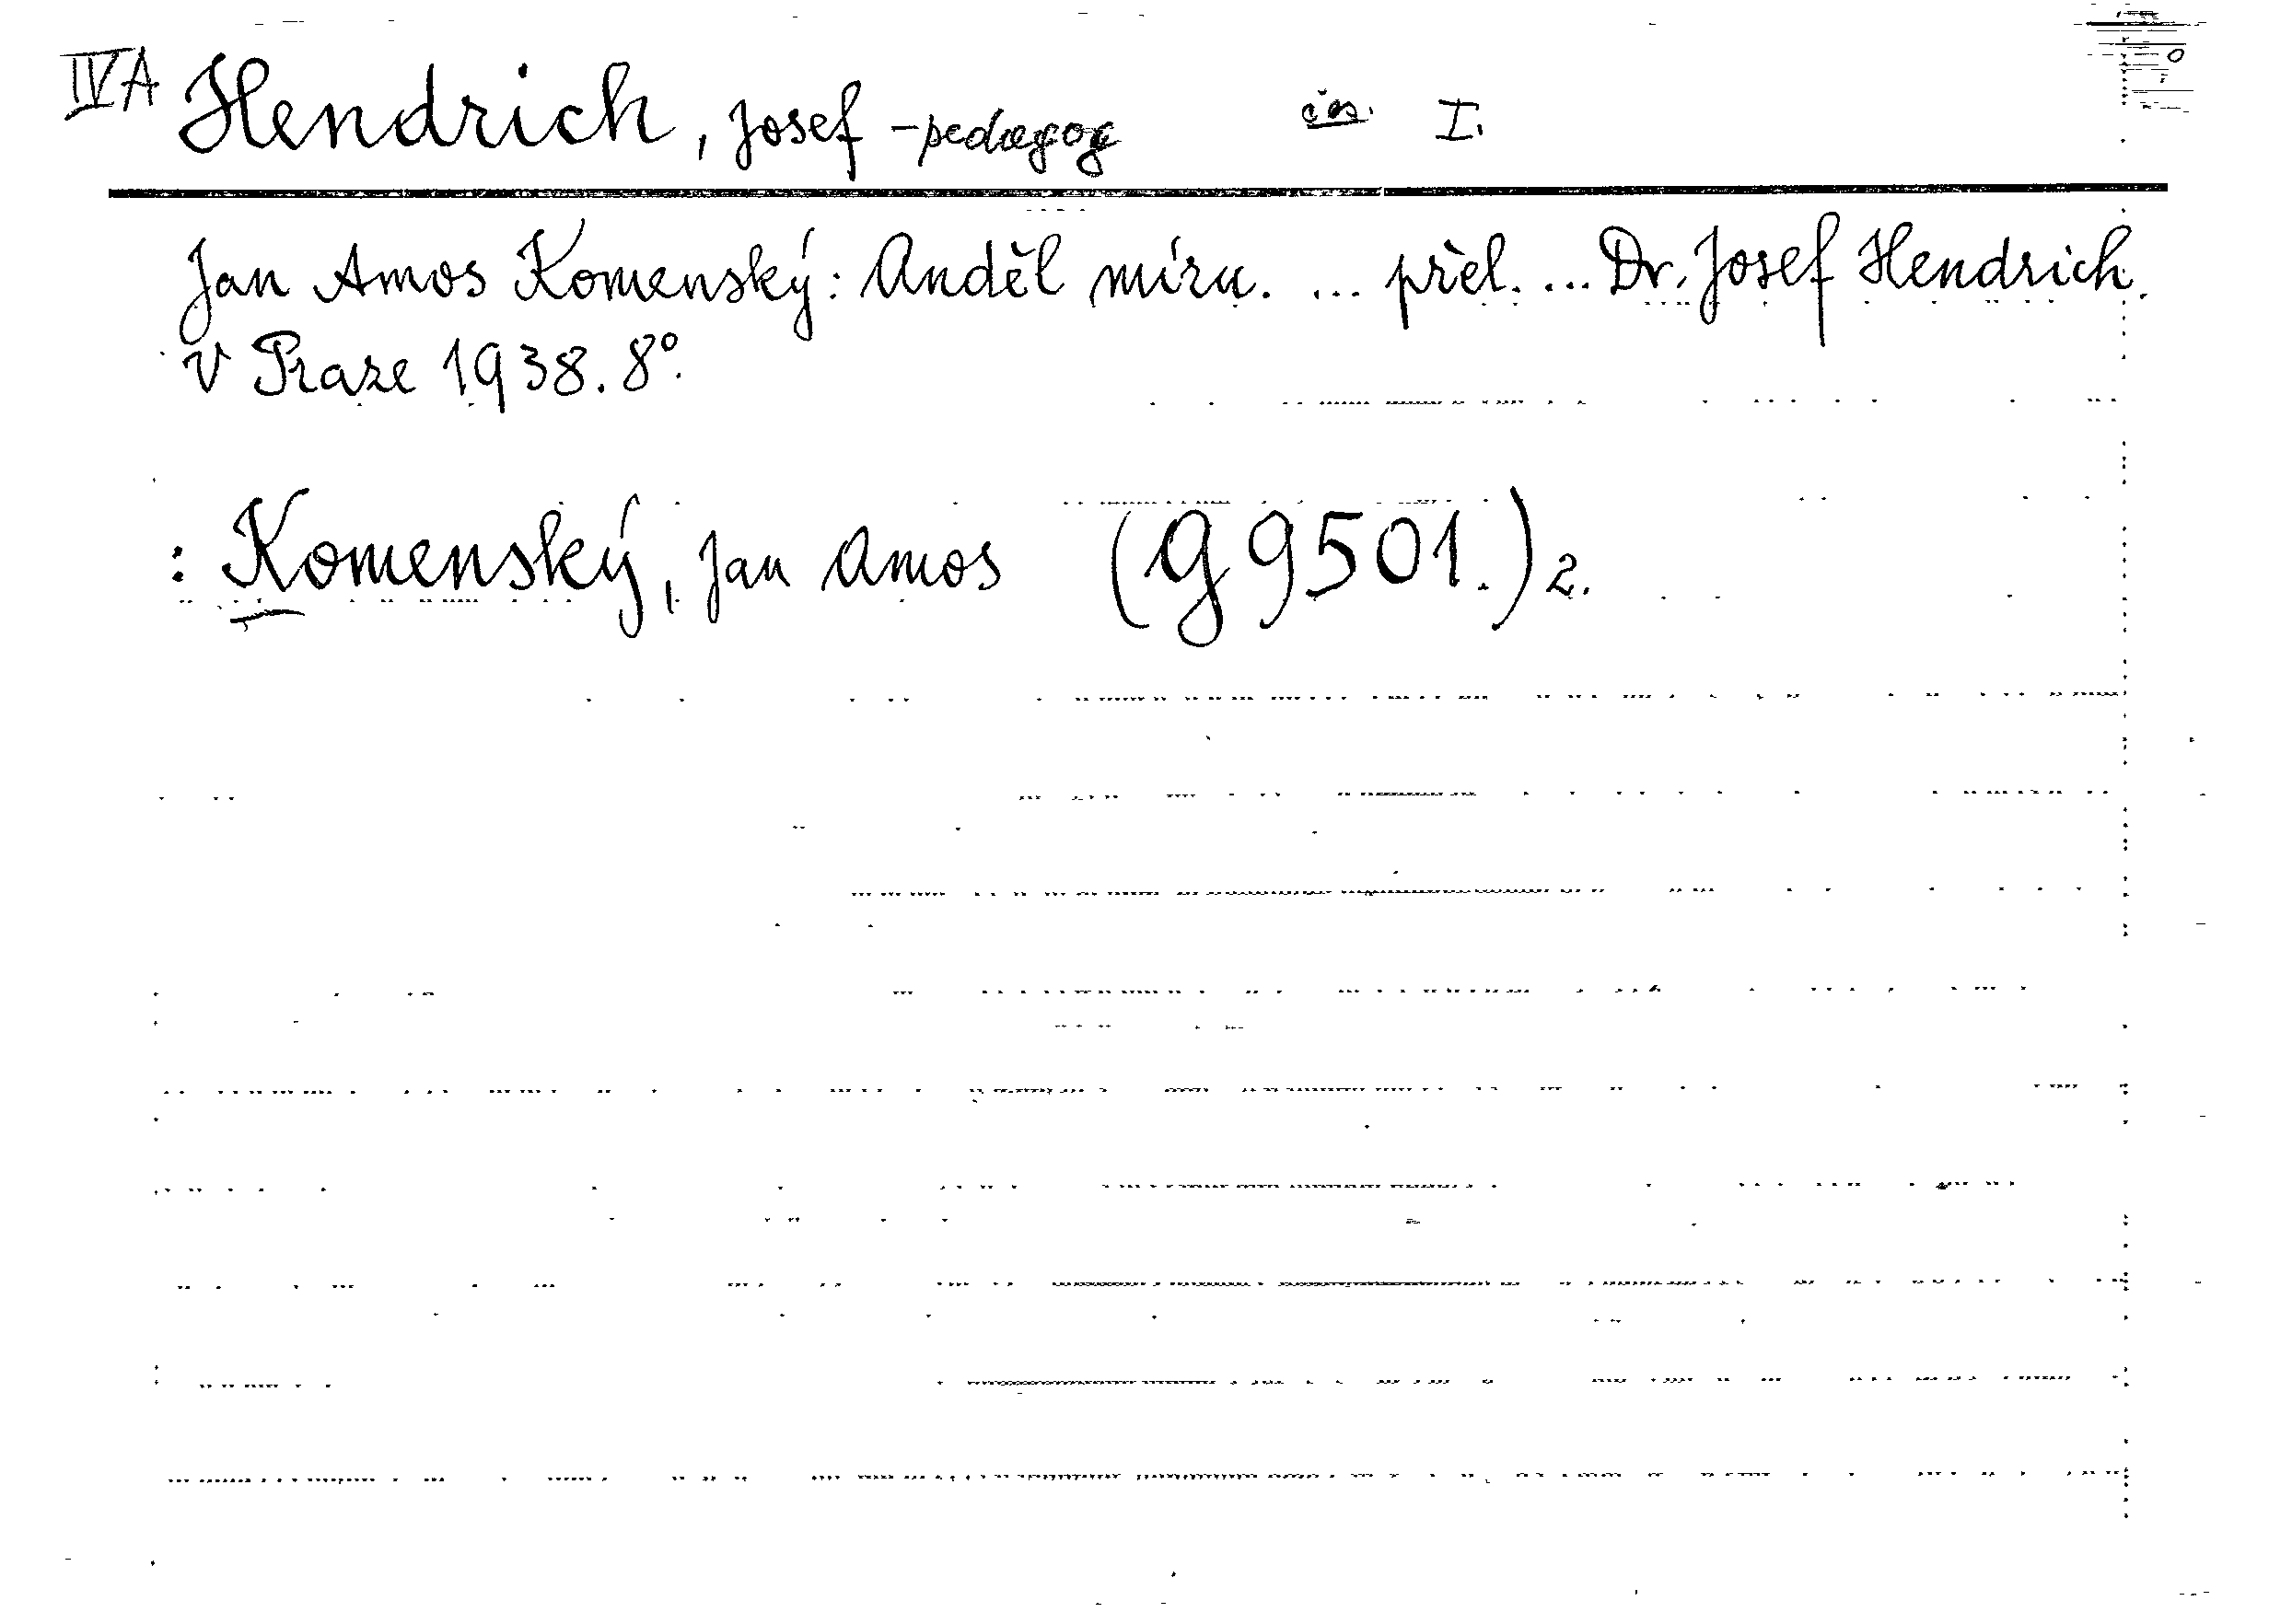 IVA Hendrich, Josef - pedagog čes. I.
Jan Amos Komenský: Anděl míru. ... přel. ... Dr. Josef Hendrich.
V Praze 1938. 8°.
: Komenský, Jan Amos (g 9501.) 2.